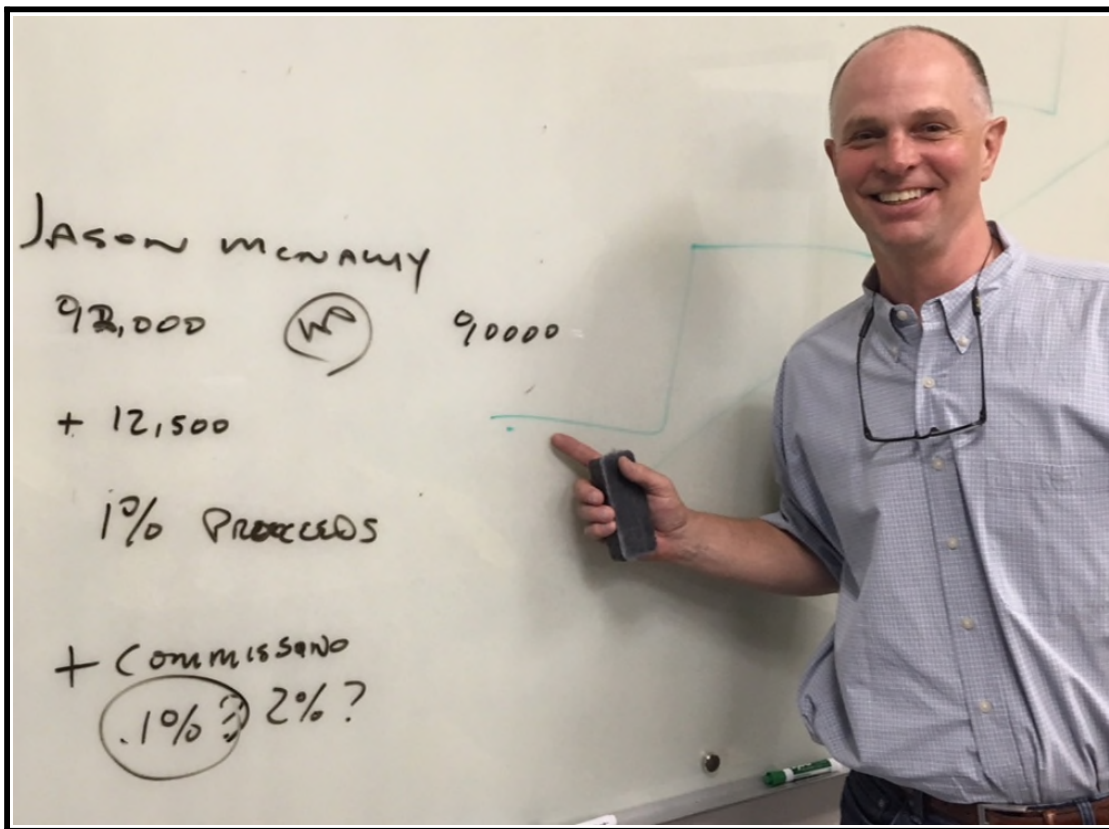 JASON MCNALLY
92,000 90000
+ 12,500
1% PROCCEDS
+ COMMISSANO
.1% ? 2% ?